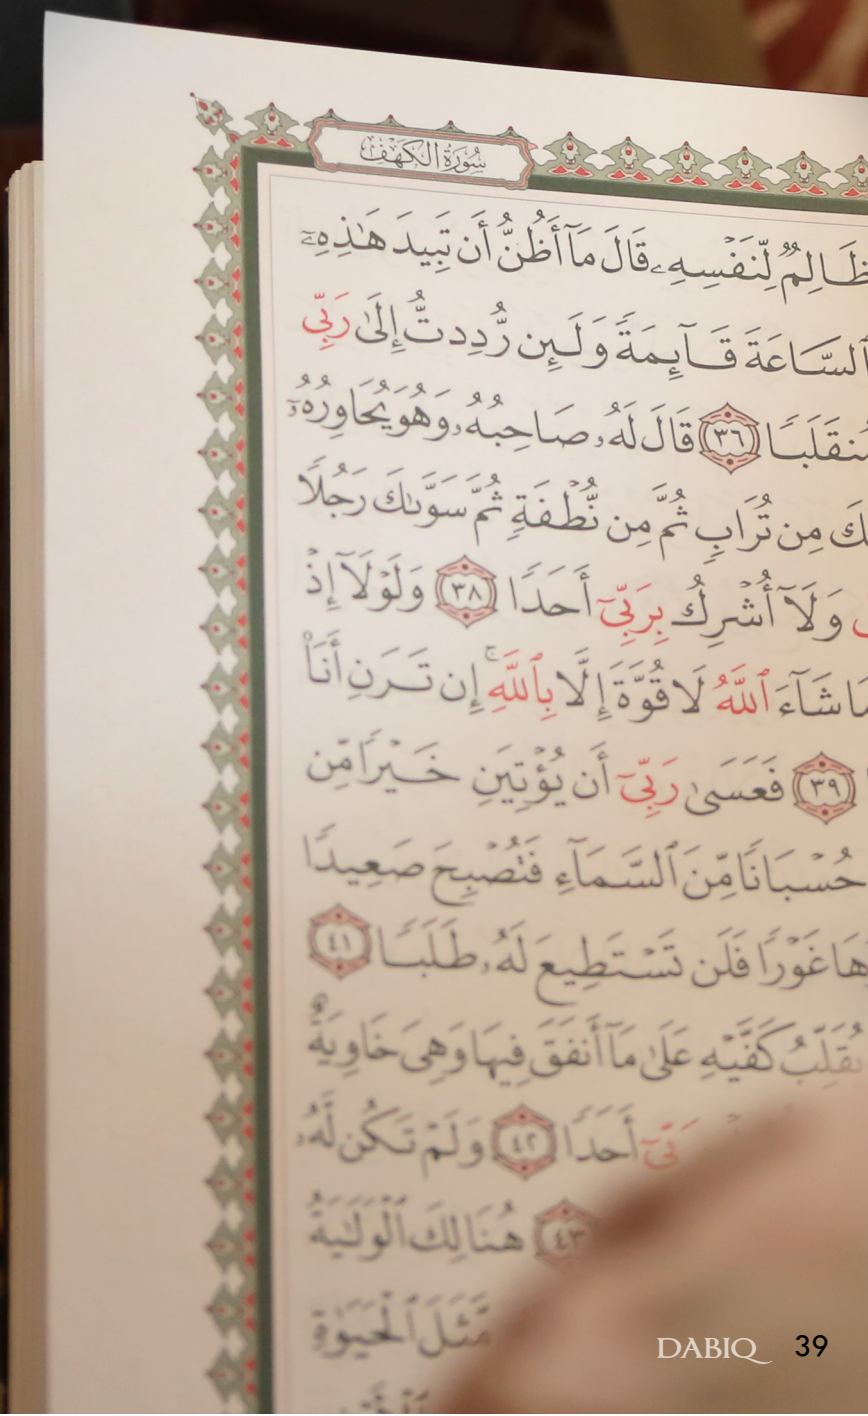 سُورَةُ الكَهْفِ
ظَالِمٌ لِّنَفْسِهِۦ قَالَ مَآ أَظُنُّ أَن تَبِيدَ هَٰذِهِۦٓ
ٱلسَّاعَةَ قَآئِمَةً وَلَئِن رُّدِدتُّ إِلَىٰ رَبِّى
مُنقَلَبًا ٣٦ قَالَ لَهُۥ صَاحِبُهُۥ وَهُوَ يُحَاوِرُهُۥٓ
مِن تُرَابٍ ثُمَّ مِن نُّطْفَةٍ ثُمَّ سَوَّىٰكَ رَجُلًا
وَلَآ أُشْرِكُ بِرَبِّىٓ أَحَدًا ٣٨ وَلَوْلَآ إِذْ
شَآءَ ٱللَّهُ لَا قُوَّةَ إِلَّا بِٱللَّهِ ۚ إِن تَرَنِ أَنَا۠
٣٩ فَعَسَىٰ رَبِّىٓ أَن يُؤْتِيَنِ خَيْرًا مِّن
حُسْبَانًا مِّنَ ٱلسَّمَآءِ فَتُصْبِحَ صَعِيدًا
غَوْرًا فَلَن تَسْتَطِيعَ لَهُۥ طَلَبًا ٤١
يُقَلِّبُ كَفَّيْهِ عَلَىٰ مَآ أَنفَقَ فِيهَا وَهِىَ خَاوِيَةٌ
أَحَدًا ٤٢ وَلَمْ تَكُن لَّهُۥ
٤٣ هُنَالِكَ ٱلْوَلَٰيَةُ
مَّثَلَ ٱلْحَيَوٰةِ
DABIQ 39